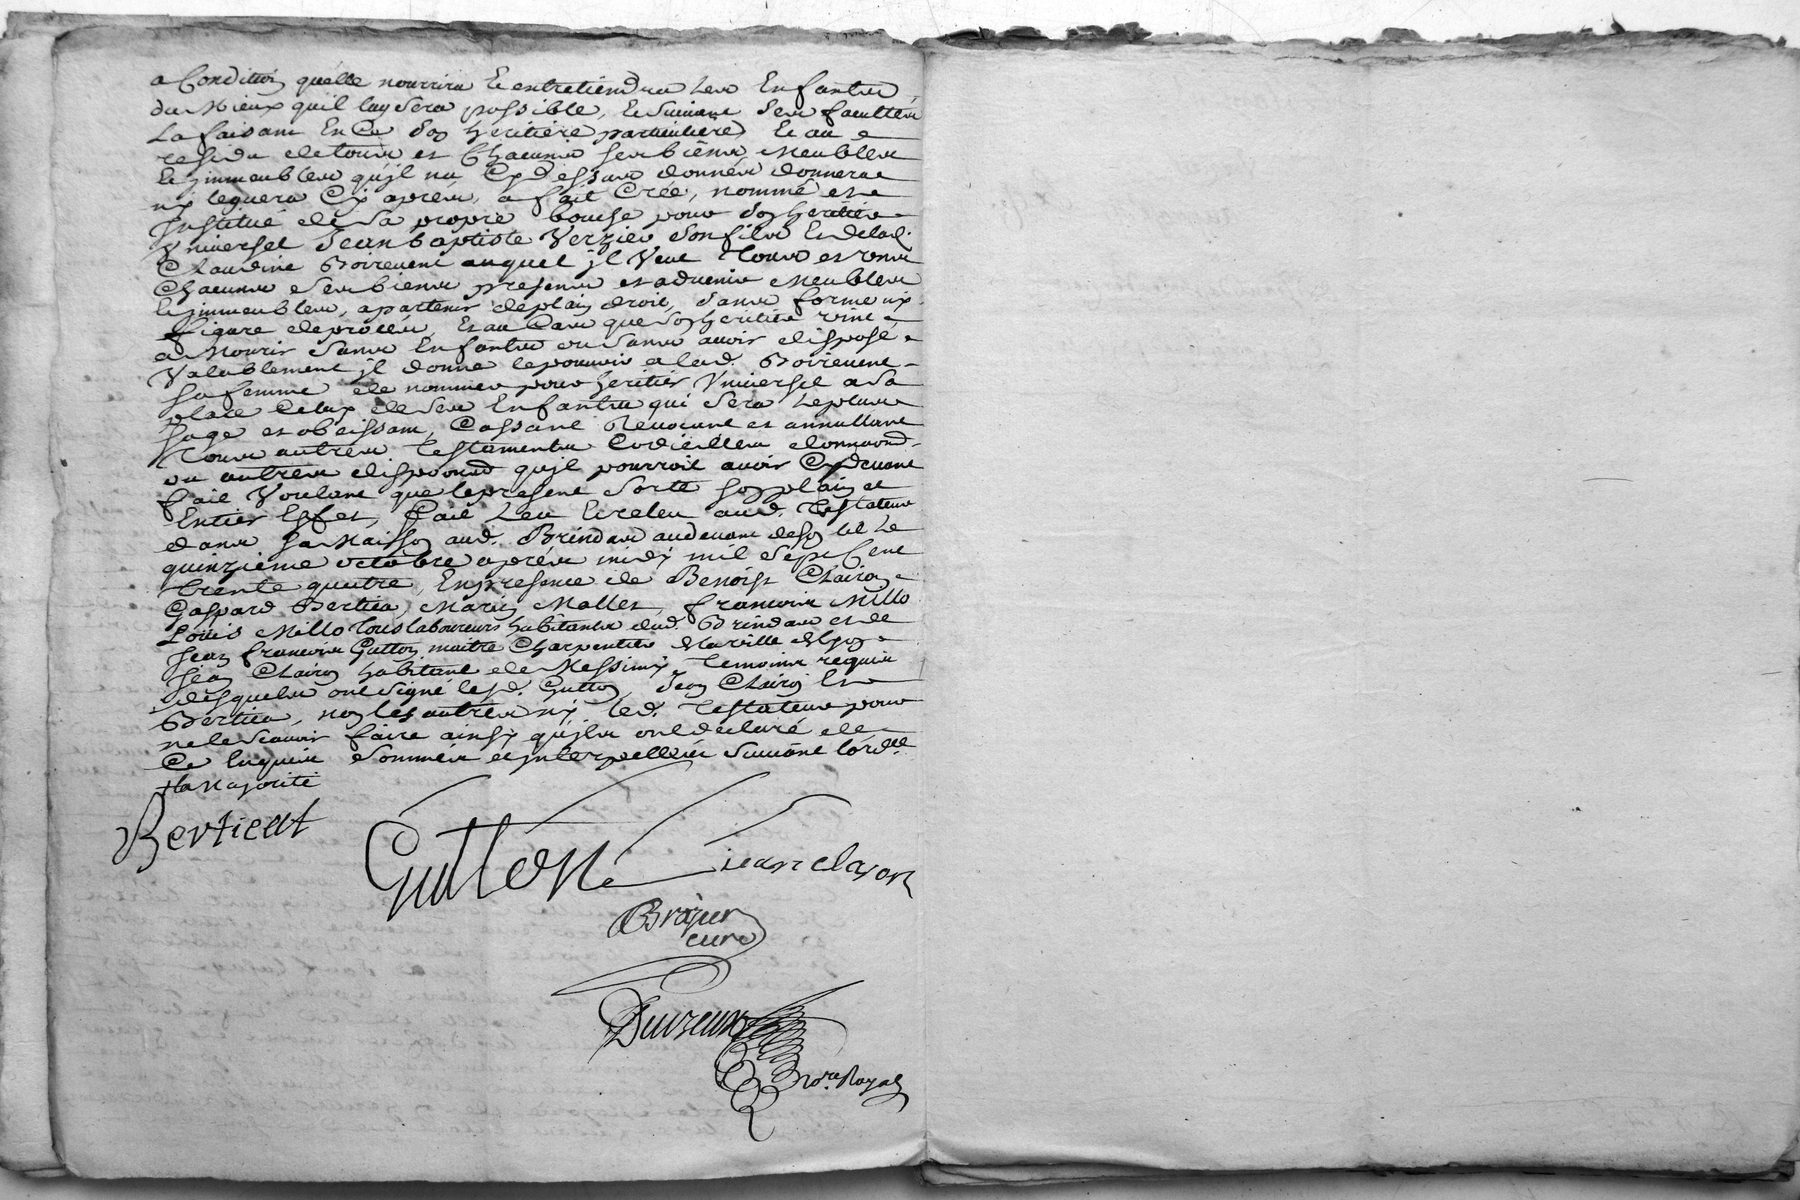 a Condition quelle nourrira et entretiendra ses Enfants
du Mieux quil luy sera possible, et suivant ses facultés
La faisant En Ce son heritiere particuliere Et au
residu de tous et Chacuns ses biens, Meubles
et jmmeubles qu'jl na Cy dessus donnés donnera
ny leguera Cy aprés, a fait Créé, nommé et
Jnstitué de sa propre bouche pour son heritier
Vniversel Jean baptiste Verzier son fils et de lad.
Claudine Boirevent auquel jl Veut Tous et uns
Chacuns ses biens presents et advenir Meubles
et jmmeubles, apartenir de plain droit, sans forme ny
figure de procés, Et au Cas que son heritier vint
a Mourir sans Enfants ou sans avoir disposé
Valablement jl donne le pouvoir a lad. Boirevent
sa femme de nommer pour heritier Vniversel a sa
place Celuy de ses Enfants qui sera le plus
sage et obeissant, Cassant Revocant et annullant
Tous autres Testaments Codicilles donnaons
ou autres disposons qu'jl pourroit avoir Cy devant
fait Voulant que le present sorte son plain et
Entier Effet, fait Leu et releu aud. Testateur
dans sa Maison aud. Brindas au devant de son lit Le
quinzieme octobre aprés midy mil sept Cent
trente quatre, En presence de Benoist Clairon
Gaspard Bertier, Marin Mallet, francois Millo
Loüis Millo tous laboureurs habitants dud. Brindas et de
Jean francois Gutton maitre Charpentier de la ville de Lyon
Jean Clairon habitant de Messimy Temoins requis
desquels ont signé lesd. Gutton, Jean Clairon et
Bertier, non les autres ny led. Testateur pour
ne le scavoir faire ainsy qu'jls ont declaré de
Ce Enquis sommés et jnterpellés suivant l'ord.ce
+la Majorité
Bertieat
Gutton
jean claron
Brojer
curé
No.re Royal